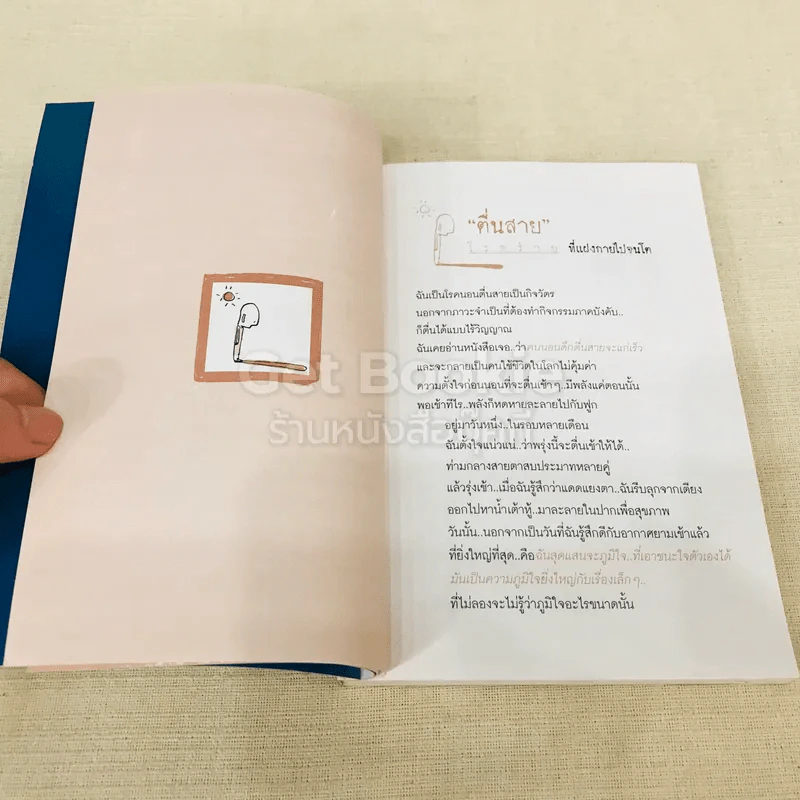 "ตื่นสาย"
โรคร้าย ที่แฝงกายไปจนโต
ฉันเป็นโรคนอนตื่นสายเป็นกิจวัตร
นอกจากภาวะจำเป็นที่ต้องทำกิจกรรมภาคบังคับ..
ก็ตื่นได้แบบไร้วิญญาณ
ฉันเคยอ่านหนังสือเจอ..ว่าคนนอนดึกตื่นสายจะแก่เร็ว
และจะกลายเป็นคนใช้ชีวิตในโลกไม่คุ้มค่า
ความตั้งใจก่อนนอนที่จะตื่นเช้าๆ..มีพลังแค่ตอนนั้น
พอเช้าทีไร..พลังก็หดหายละลายไปกับฟูก
อยู่มาวันหนึ่ง..ในรอบหลายเดือน
ฉันตั้งใจแน่วแน่..ว่าพรุ่งนี้จะตื่นเช้าให้ได้..
ท่ามกลางสายตาสบประมาทหลายคู่
แล้วรุ่งเช้า..เมื่อฉันรู้สึกว่าแดดแยงตา..ฉันรีบลุกจากเตียง
ออกไปหาน้ำเต้าหู้..มาละลายในปากเพื่อสุขภาพ
วันนั้น..นอกจากเป็นวันที่ฉันรู้สึกดีกับอากาศยามเช้าแล้ว
ที่ยิ่งใหญ่ที่สุด..คือฉันสุดแสนจะภูมิใจ..ที่เอาชนะใจตัวเองได้
มันเป็นความภูมิใจยิ่งใหญ่กับเรื่องเล็กๆ..
ที่ไม่ลองจะไม่รู้ว่าภูมิใจอะไรขนาดนั้น
Get Bookie
ร้านหนังสือ